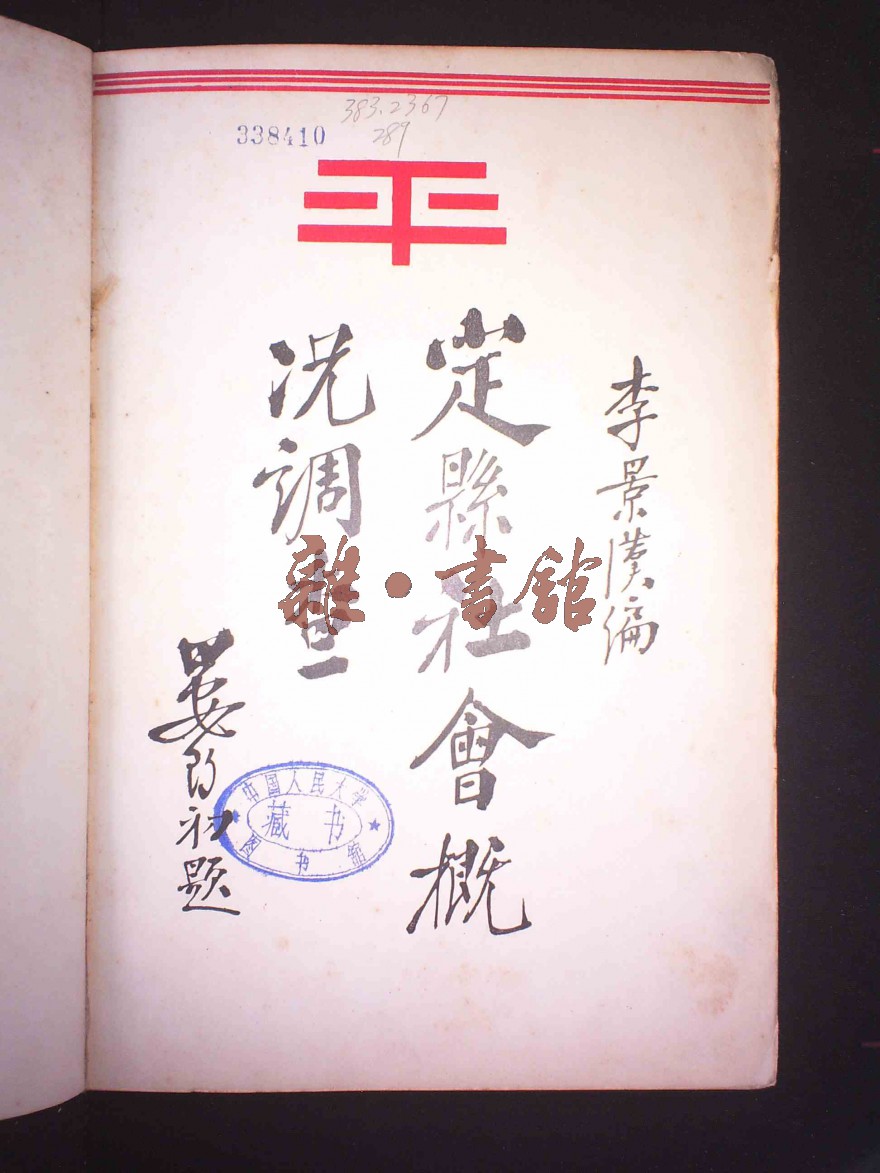 383.2367
289
338410
平
李景漢編
定縣社會概
況調查
晏陽初題
中国人民大学
藏书
图书馆
雜·書館